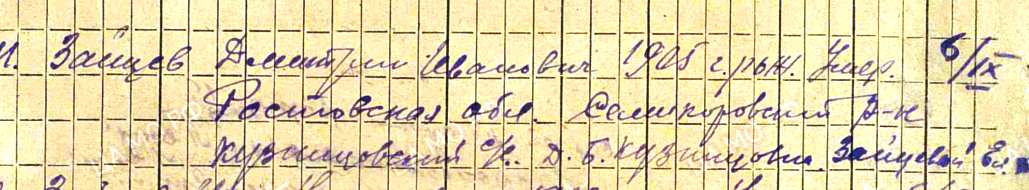 1. Зайцев Дмитрий Иванович 1905 г. рожд. Умер. 6/IX
Ростовская обл. Семикоровский р-н
Кузнецовский с/с. д. Б. Кузнецовка. Зайцевой Ел.